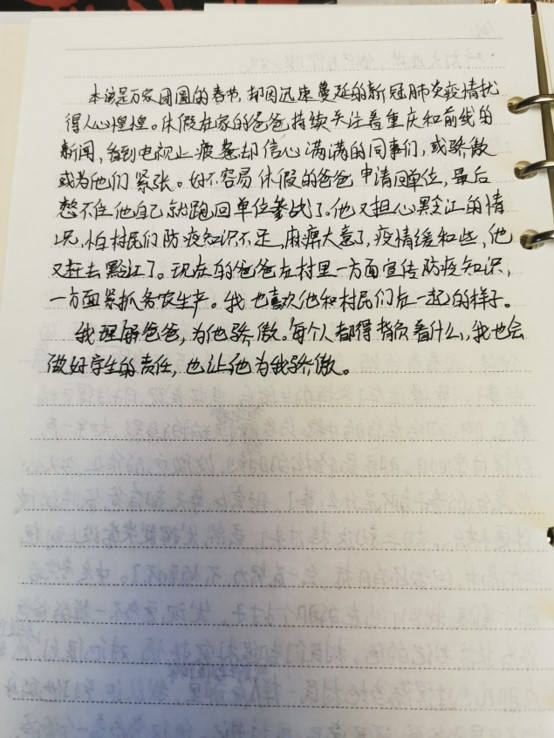 本该是万家团圆的春节,却因迅速蔓延的新冠肺炎疫情扰
得人心惶惶。休假在家的爸爸持续关注着重庆和前线的
新闻,看到电视上疲惫却信心满满的同事们,或骄傲
或为他们紧张。好不容易休假的爸爸申请回单位,最后
憋不住他自己就跑回单位参战了。他又担心黔江的情
况,怕村民们防疫知识不足,麻痹大意了,疫情缓和些,他
又赶去黔江了。现在的爸爸在村里一方面宣传防疫知识,
一方面紧抓务农生产。我也喜欢他和村民们在一起的样子。
我理解爸爸,为他骄傲。每个人都得背负着什么,我也会
做好学生的责任,也让他为我骄傲。